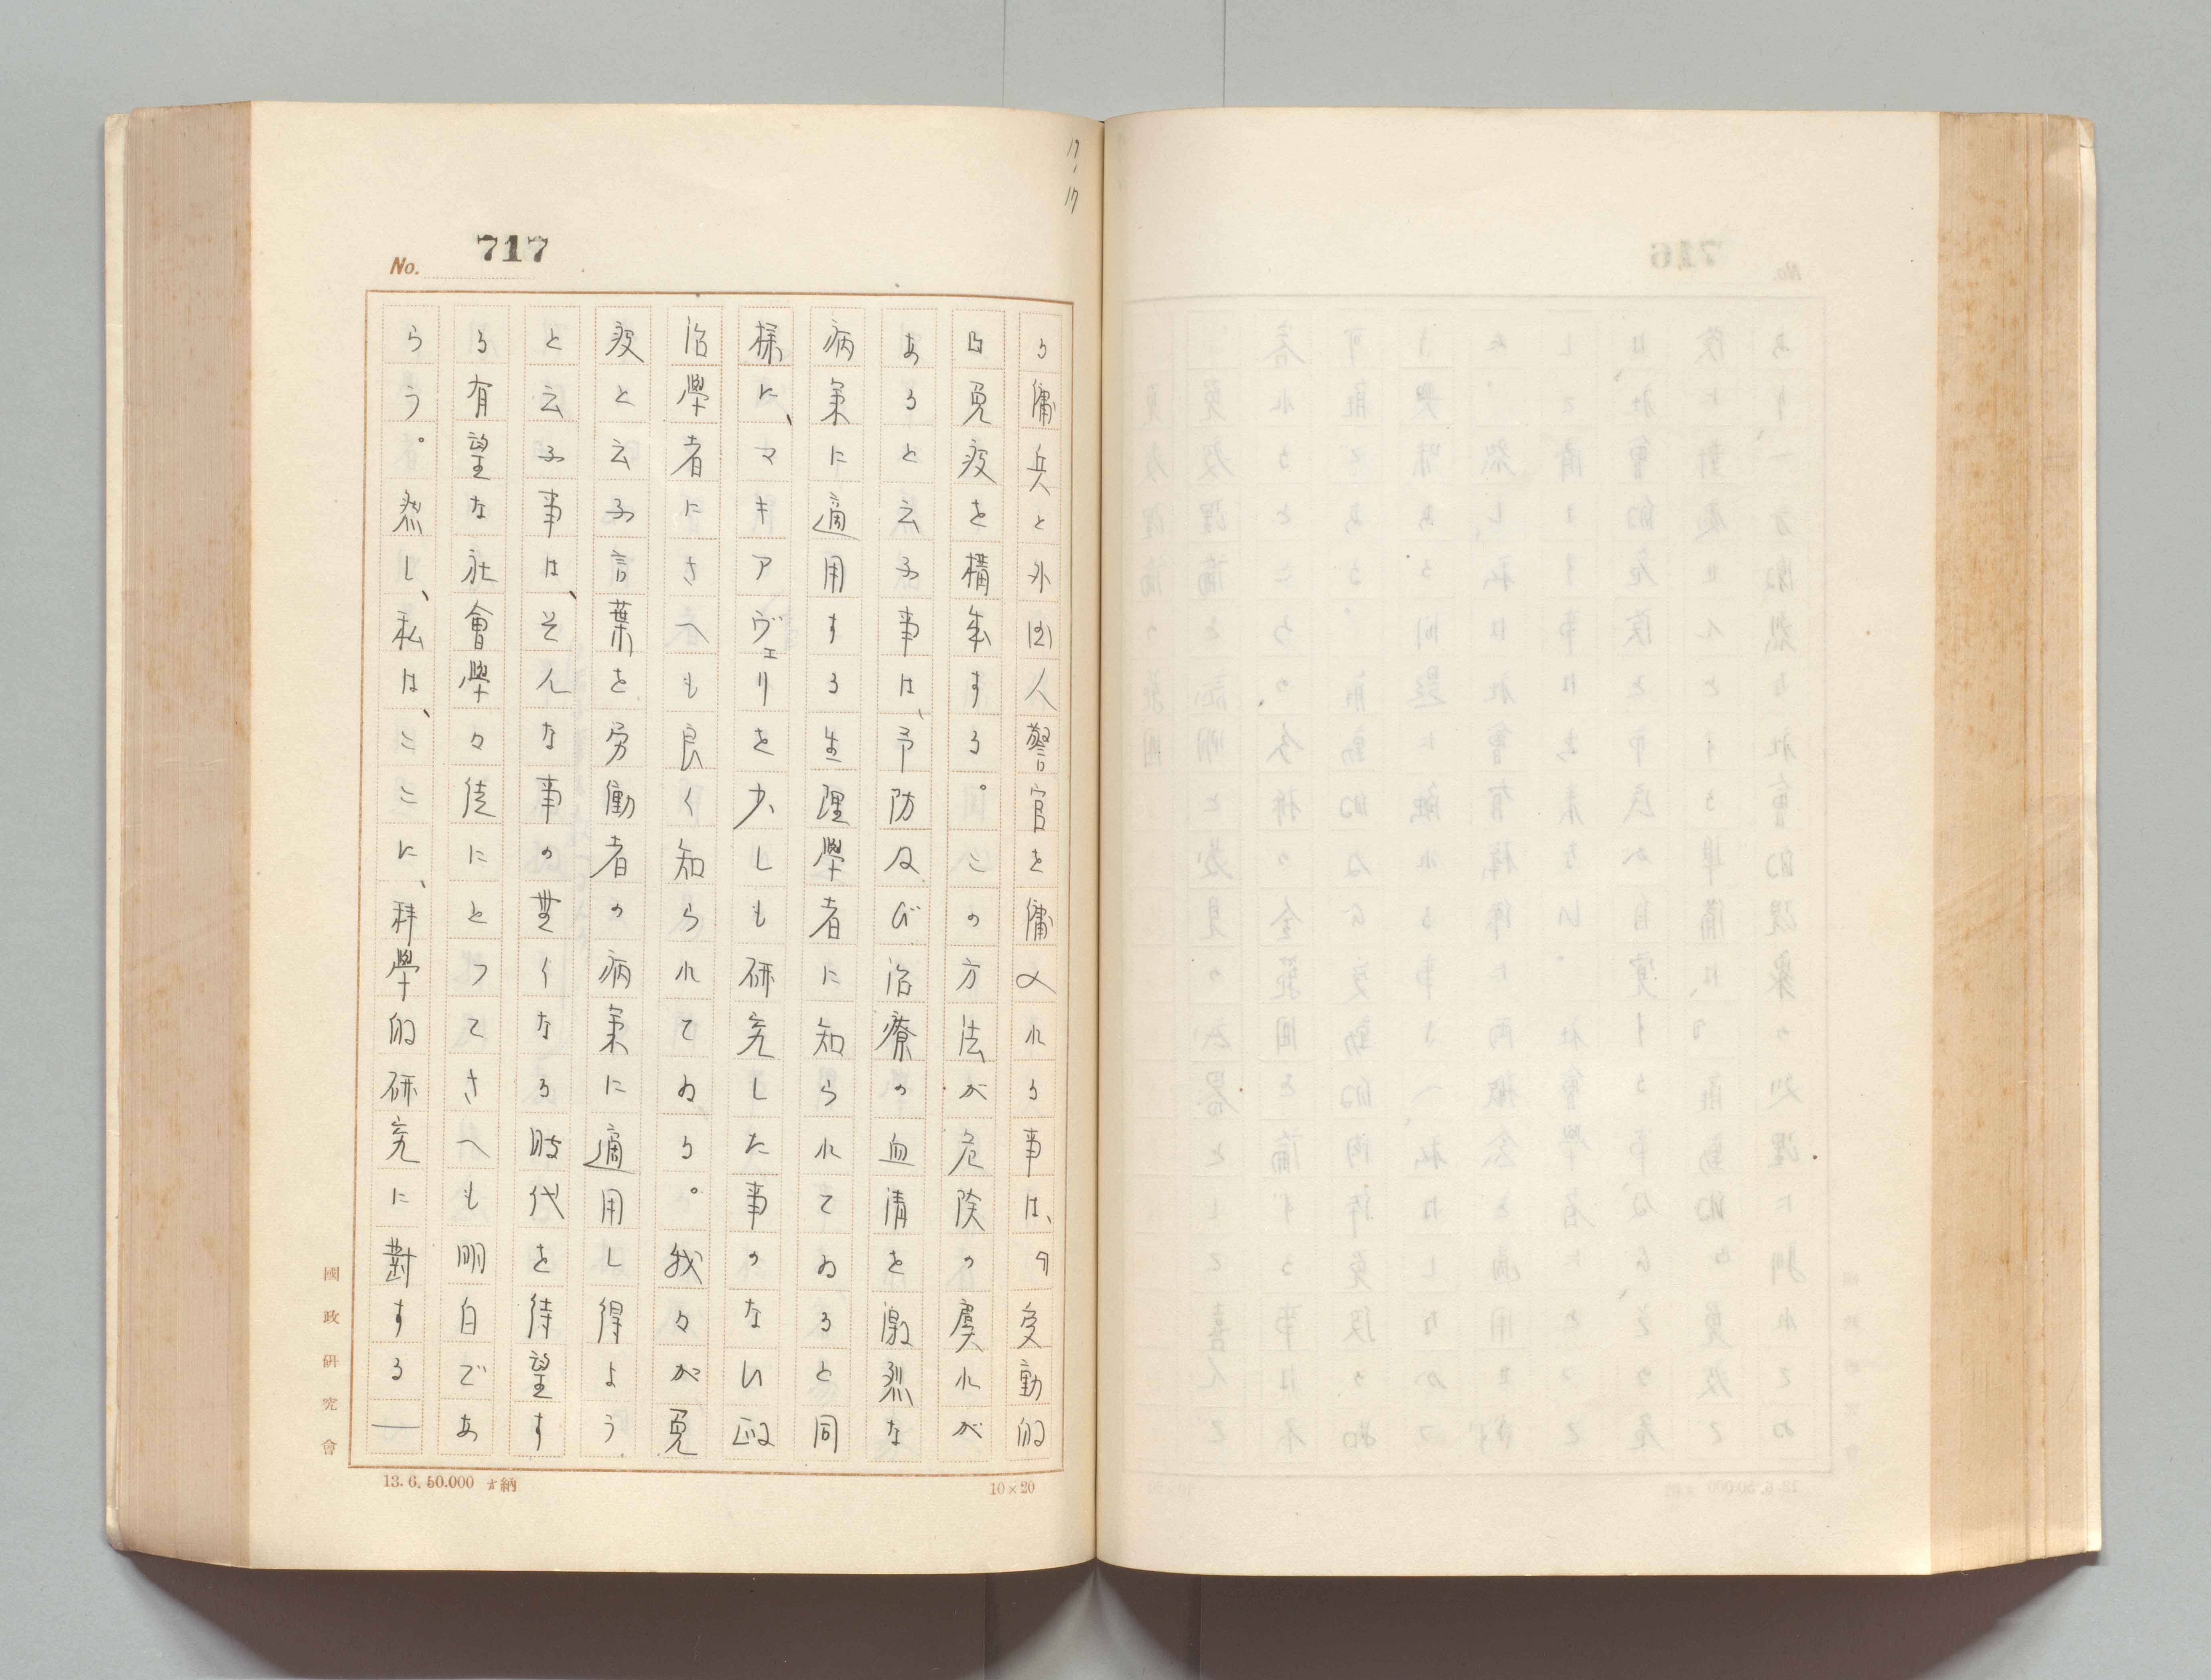 17.17
No. 717
る傭兵と外国人警官を傭入れる事は、「受動的
な免疫を構成する。この方法が危険の虞れが
あると云ふ事は、予防及び治療の血清を激烈な
病氣に適用する生理學者に知られてゐると同
様に、マキアヴェリを少しも研究した事のない政
治學者にさへも良く知られてゐる。我々が免
疫と云ふ言葉を労働者の病氣に適用し得よう
と云ふ事は、そんな事の無くなる時代を待望す
る有望な社會學々徒にとつてさへも明白であ
らう。然し、私は、ここに、科學的研究に對する—
國政研究會
13.6.50.000 納
10×20